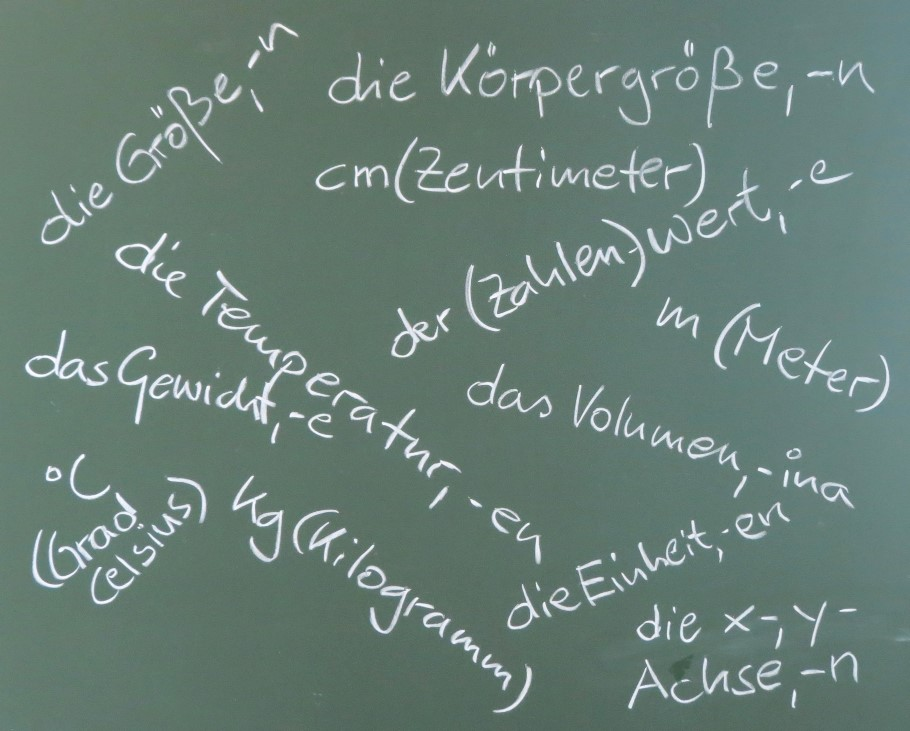 die Größe, -n
die Körpergröße, -n
cm (Zentimeter)
der (Zahlen)wert, -e
die Temperatur, -en
m (Meter)
das Gewicht, -e
das Volumen, -ina
°C
(Grad
Celsius)
kg (Kilogramm)
die Einheit, -en
die x-, y-
Achse, -n